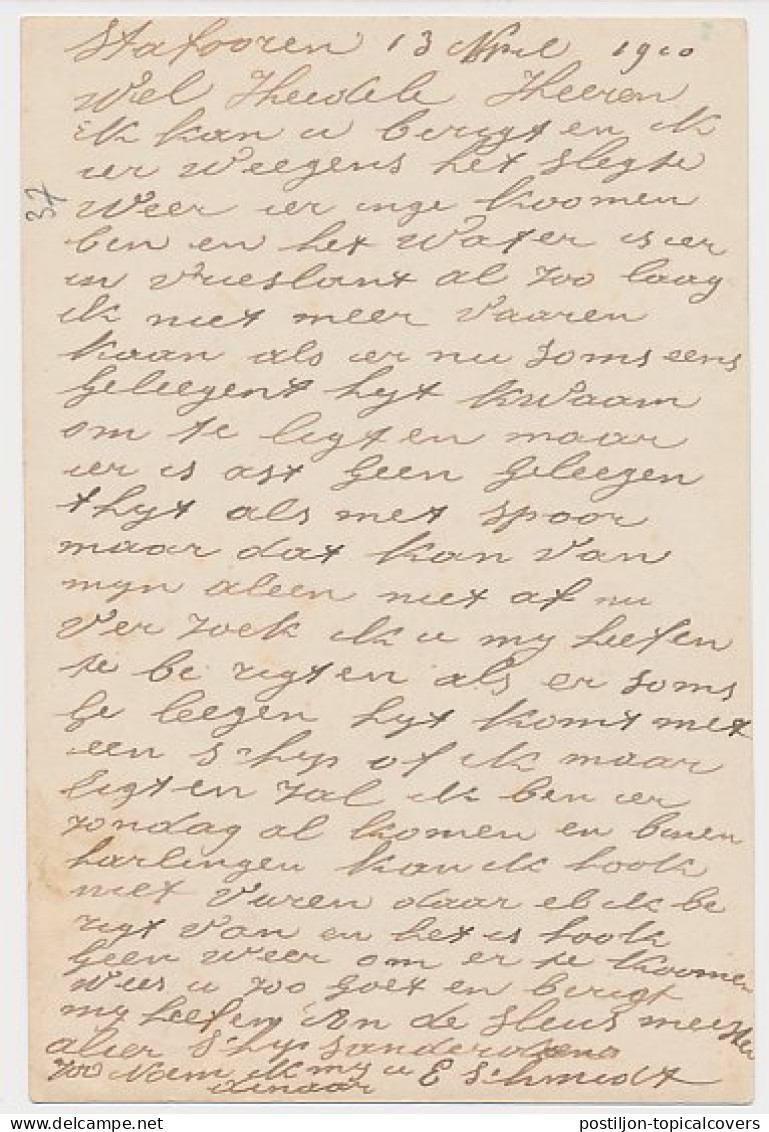 Stafooren 13 April 1910
Wel Heedele Heeren
ik kan u berigt en ik
ier weegens het slegte
Weer ier inge koomen
ben en het Water is ier
in Vrieslant al zoo laag
ik niet meer Vaaren
kaan als er nu soms eens
geleegent hyt kwaam
om te ligt en maar
ier is ast geen geleegen
thyt als met spoor
maar dat kan Van
myn aleen niet af nu
Ver zoek ik u my heefen
te be rigt en als er soms
ge leegen hyt komt met
een schip of ik maar
ligt en zal ik ben ier
zondag al komen en binen
harlingen kan ik hook
niet Vuren daar eb ik be
rigt Van en het is hook
geen weer om er te koomen
Wees u zoo goet en berigt
my heefen An de sluis meester
alier Schip
zoo Noem ik my u E Schmidt
dinaar
37
postiljon-topicalcovers
www.delcampe.net